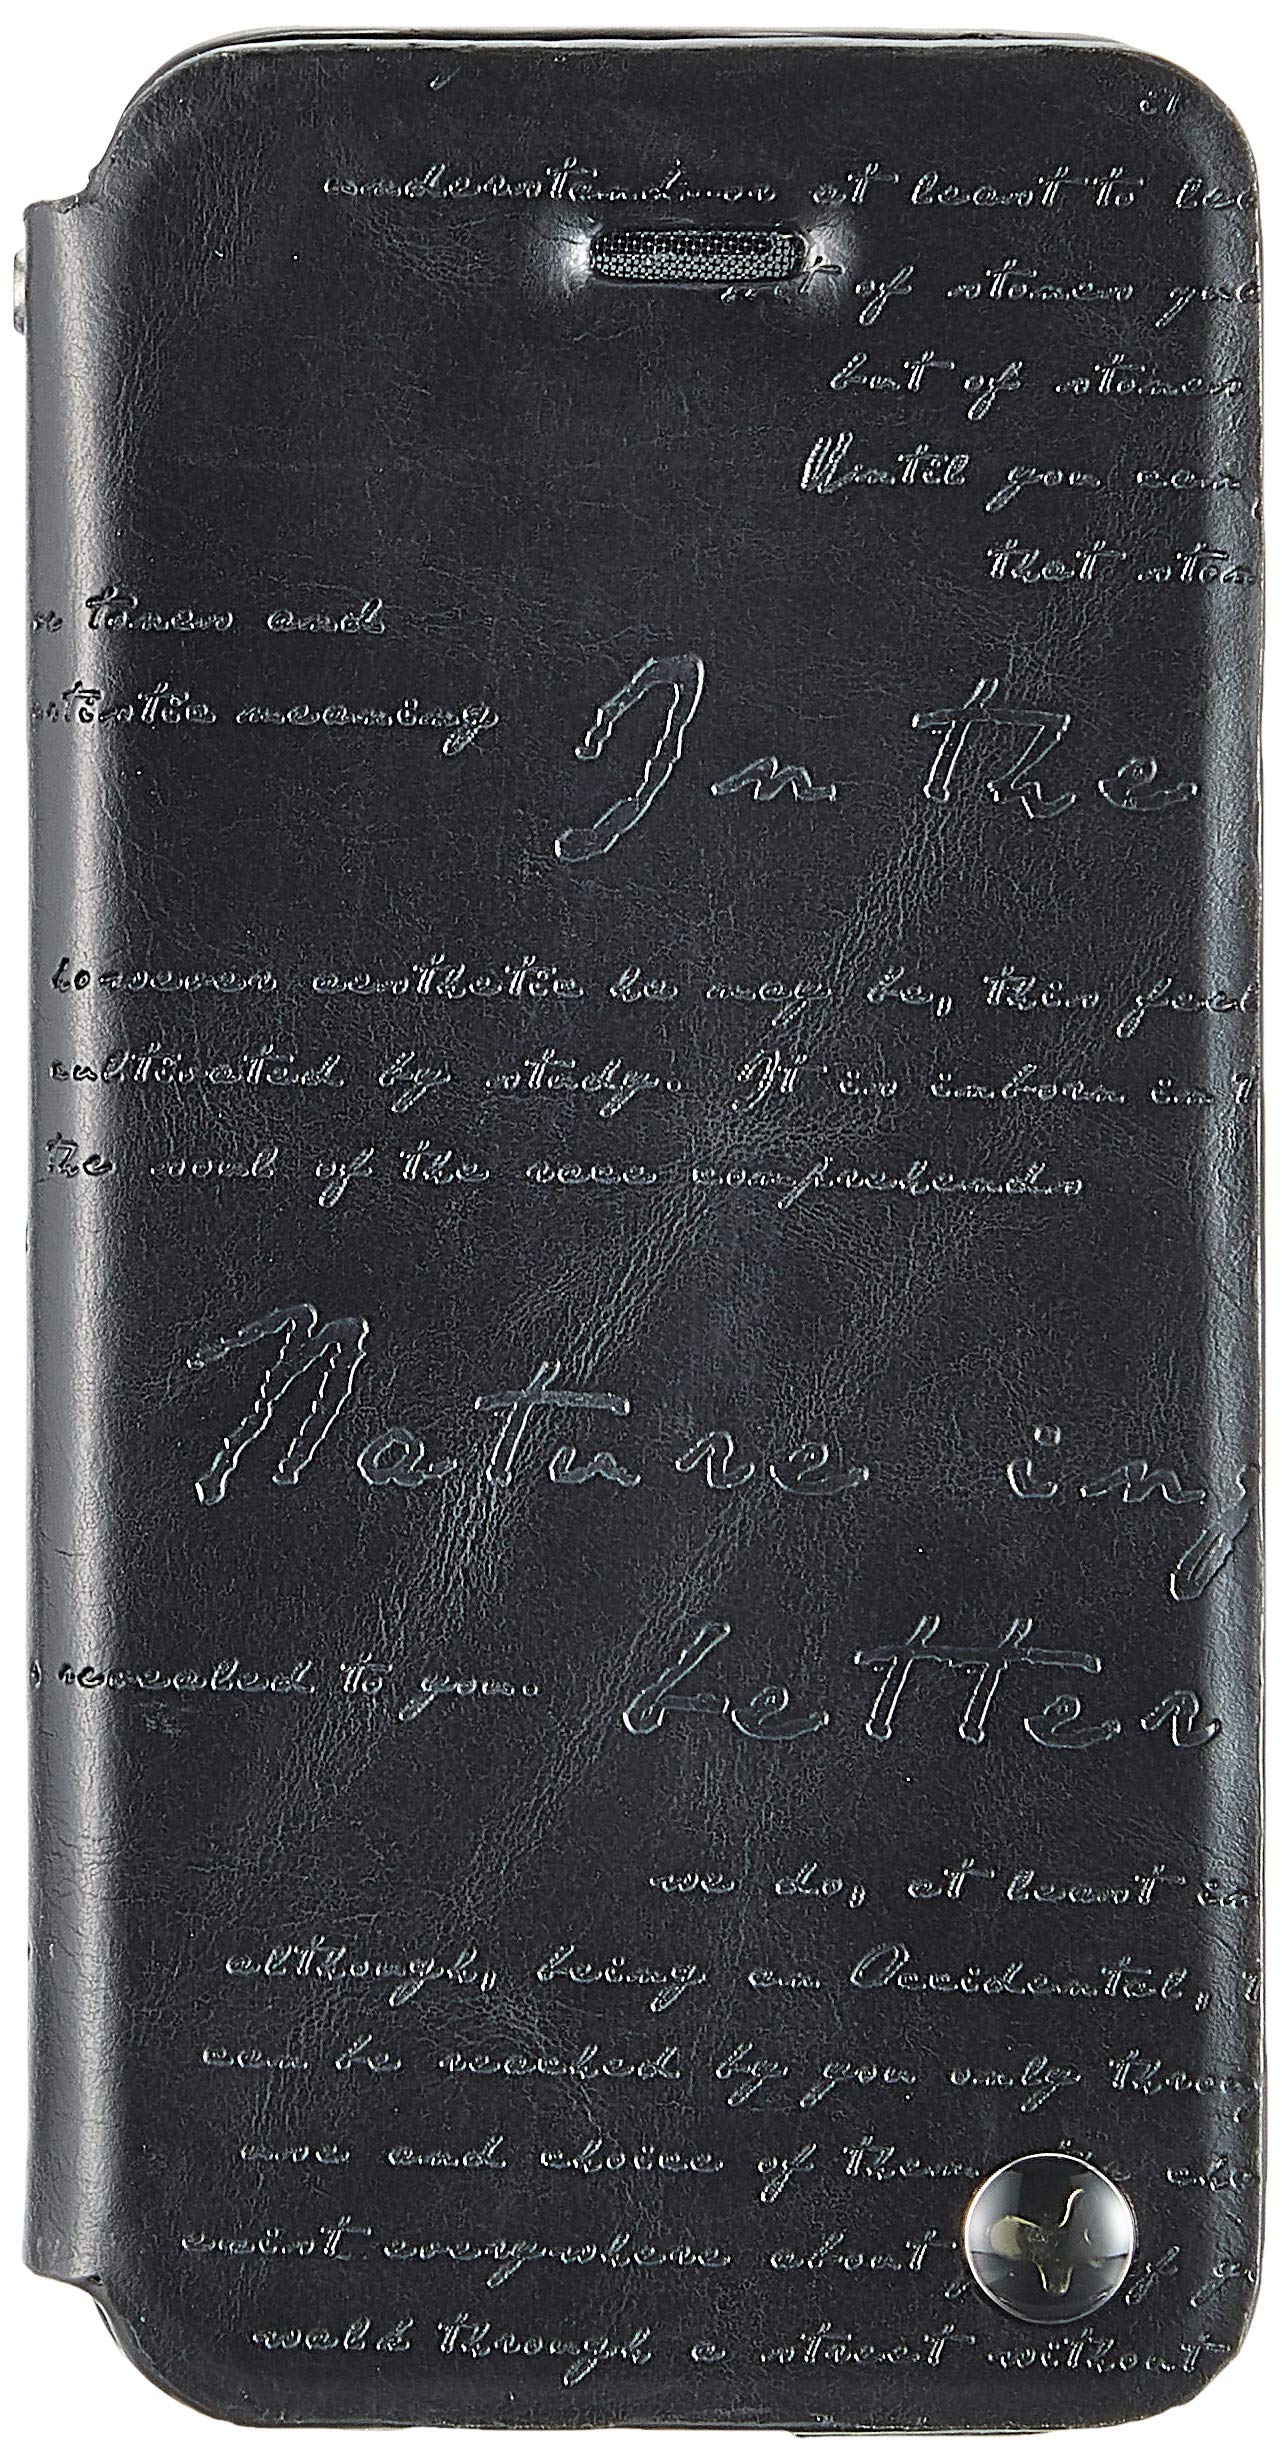 understanding at least to
of stones
but of stones
Until you can
that
tones and
meaning
In the
however aesthetic he may be, this
cultivated by study. It is inborn in
the soul of the race comprehends
Nature
revealed to you.
better
we do, at least in
although, being an Occidental,
can be reached by you only
use and choice of them
exist everywhere about
walk through a street without